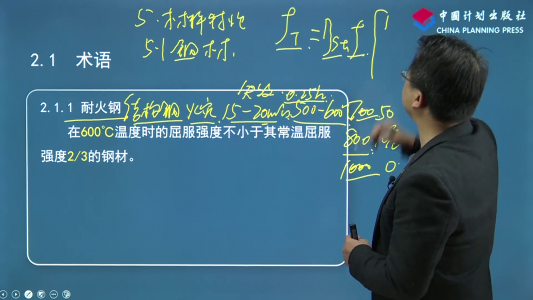 中国计划出版社
CHINA PLANNING PRESS
5.材料特性
5.1钢材.
2.1 术语
0.25h
2.1.1 耐火钢 结构钢 火灾 15-20min 500-600℃ 700 50
在600℃温度时的屈服强度不小于其常温屈服
强度2/3的钢材。
800
1000 0